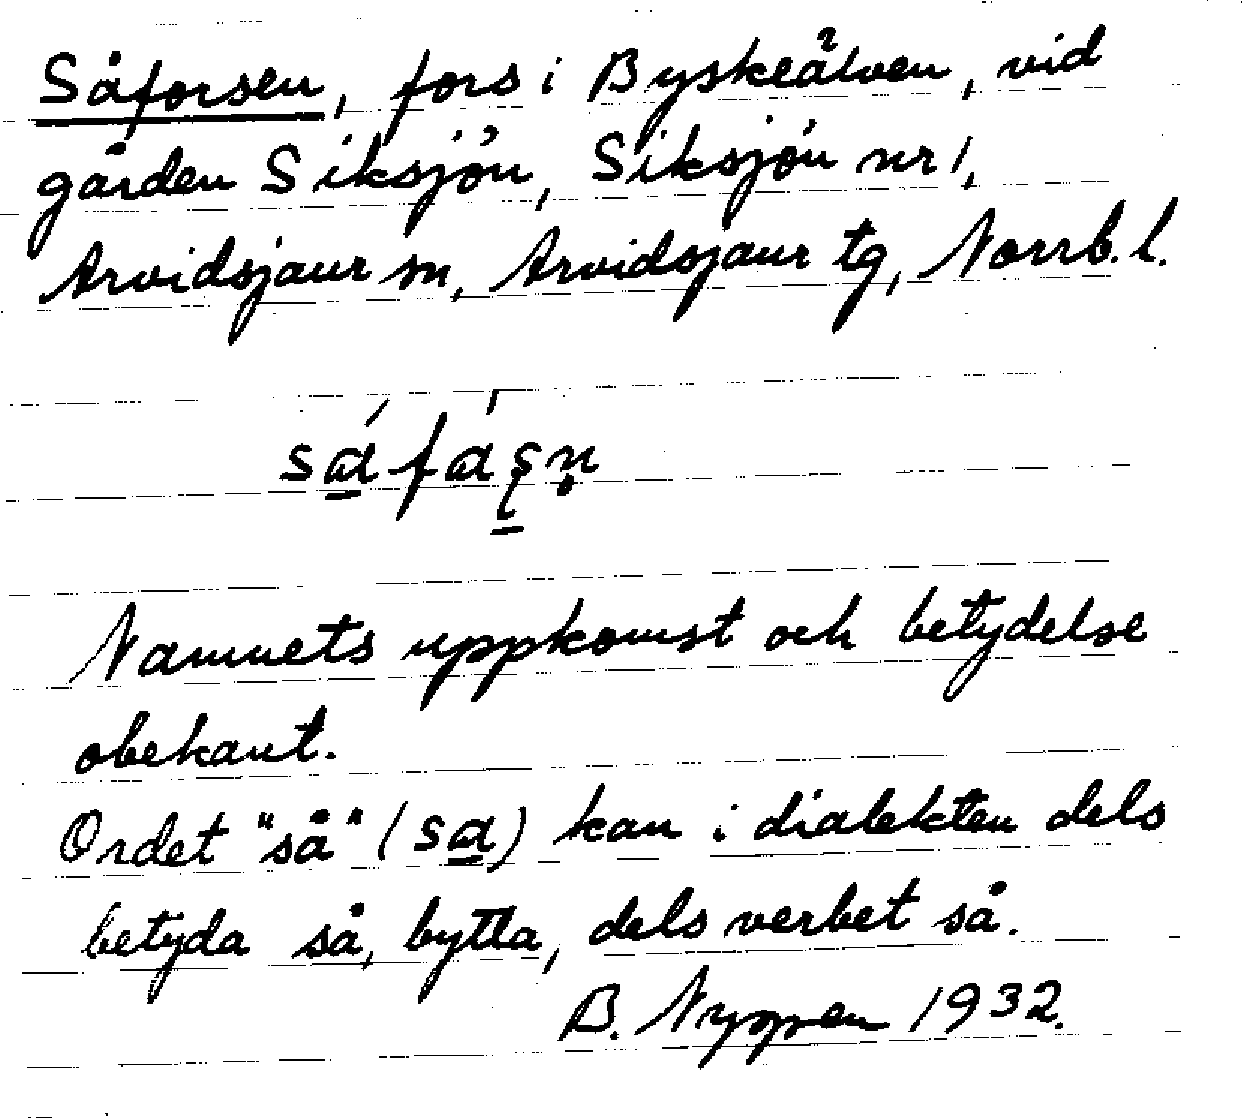 Såforsen, fors i Byskeälven, vid
gården Siksjön, Siksjön nr 1,
Arvidsjaur sn, Arvidsjaur tg, Norrb. l.
Namnets uppkomst och betydelse
obekant.
Ordet "så" (sɑ) kan i dialekten dels
betyda så, bytta, dels verbet så.
B. Nyppen 1932.